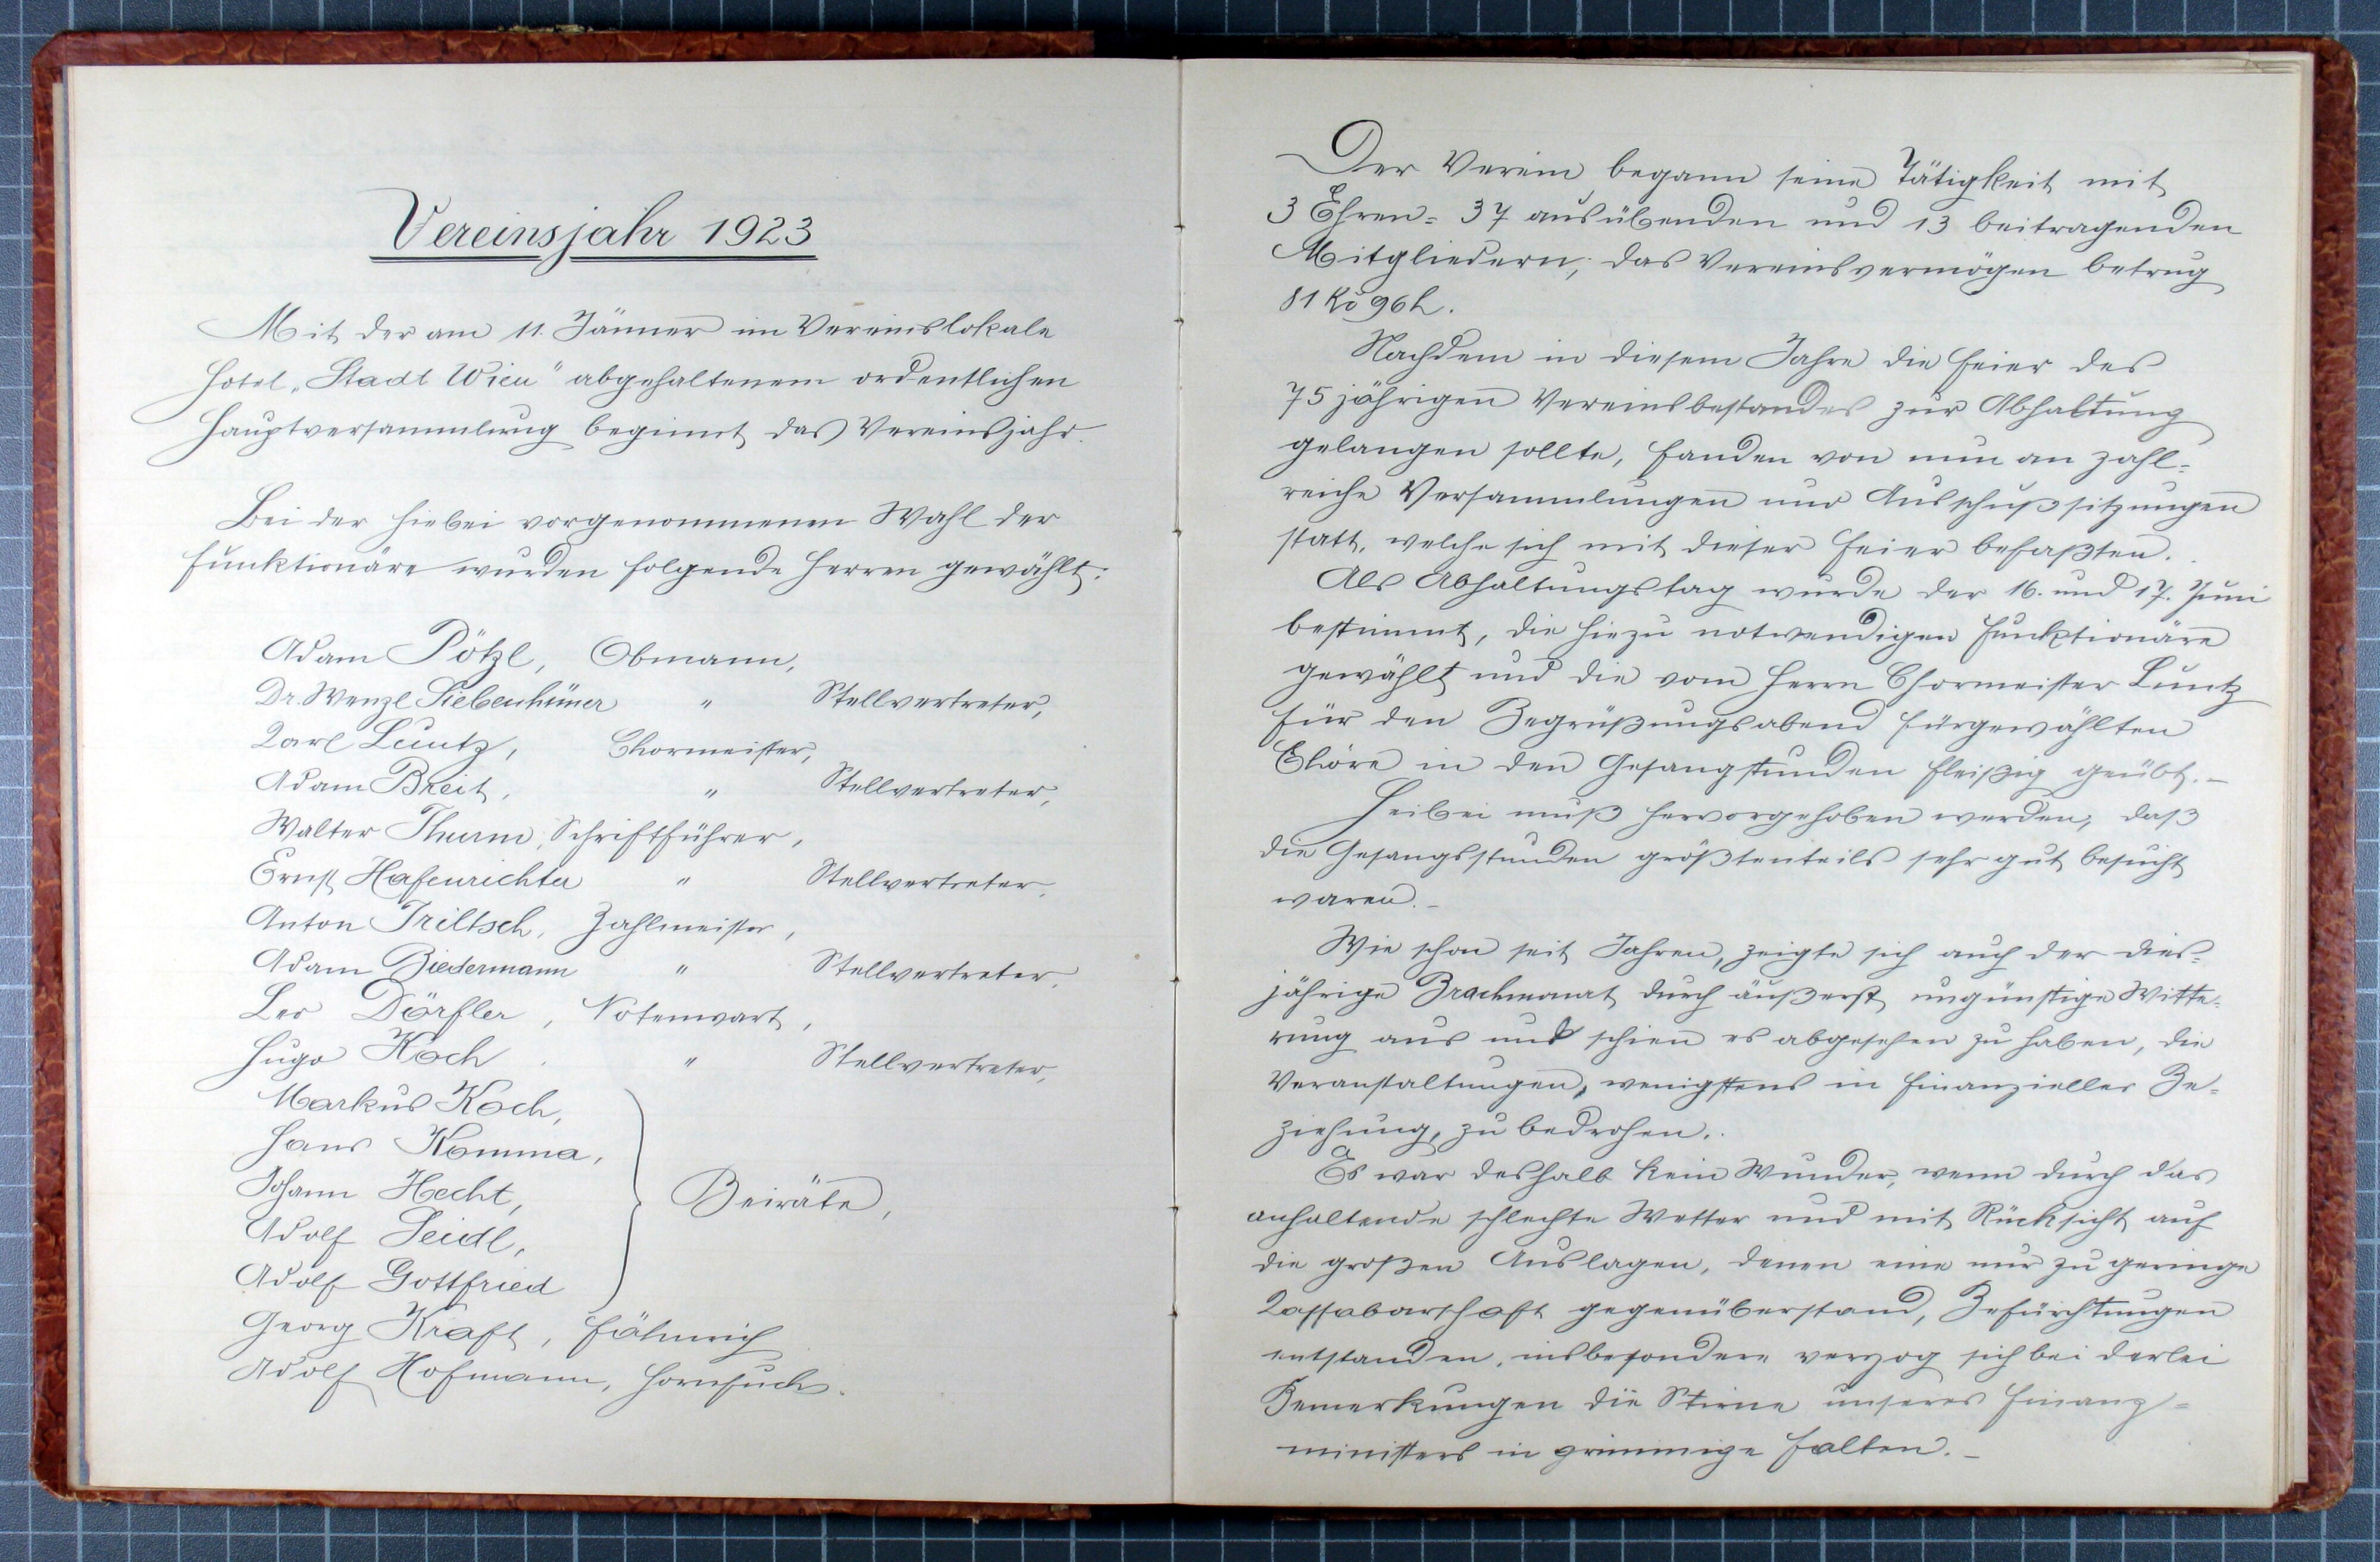 Vereinsjahr 1923
Mit der am 11. Jänner im Vereinslokale
Hotel „Stadt Wien" abgehaltenem ordentlichen
Hauptversammlung beginnt das Vereinsjahr.
Bei der hiebei vorgenommenen Wahl der
Funktionäre wurden folgende Herren gewählt:
Adam Pötzl, Obmann,
Dr. Wenzl Siebenhüner " Stellvertreter,
Karl Luntz, Chormeister,
Adam Breit, " Stellvertreter,
Walter Thurm, Schriftführer,
Ernst Hafenrichter " Stellvertreter,
Anton Triltsch, Zahlmeister,
Adam Biedermann " Stellvertreter,
Leo Dörfler, Notenwart,
Hugo Koch, " Stellvertreter,
Markus Koch,
Hans Komma,
Johann Hecht,
Beiräte,
Adolf Seidl,
Adolf Gottfried
Georg Kraft, Fähnrich
Adolf Hofmann, Hornfuchs.
Der Verein begann seine Tätigkeit mit
3 Ehren= 37 ausübenden und 13 beitragenden
Mitgliedern; das Vereinsvermögen betrug
81 Kč 96 h.
Nachdem in diesem Jahre die Feier des
75 jährigen Vereinsbestandes zur Abhaltung
gelangen sollte, fanden von nun an zahl=
reiche Versammlungen und Ausschußsitzungen
statt, welche sich mit dieser Feier befaßten.
Als Abhaltungstag wurde der 16. und 17. Juni
bestimmt, die hiezu notwendigen Funktionäre
gewählt und die vom Herrn Chormeister Luntz
für den Begrüßungsabend fürgewählten
Chöre in den Gesangstunden fleißig geübt. –
Heibei muß hervorgehoben werden, daß
die Gesangsstunden größtenteils sehr gut besucht
waren. –
Wie schon seit Jahren, zeigte sich auch der dies=
jährige Brachmonat durch äußerst ungünstige Witte=
rung aus und schien es abgesehen zu haben, die
Veranstaltungen, wenigstens in finanzieller Be=
ziehung, zu bedrohen.
Es war deshalb kein Wunder, wenn durch das
anhaltende schlechte Wetter und mit Rücksicht auf
die großen Auslagen, denen eine nur zu geringe
Kassabarschaft gegenüberstand, Befürchtungen
entstanden, insbesondere verzog sich bei derlei
Bemerkungen die Stirne unseres Finanz=
ministers in grimmige Falten. –